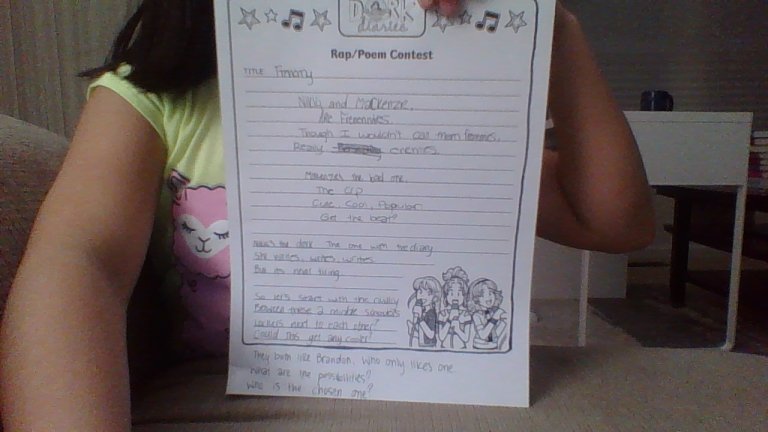 DORK
diaries
Rap/Poem Contest
TITLE Frenemy
Nikki and Mackenzie,
Are Frenemies.
Though I wouldn't call them frenemies,
Really enemies.
Mackenzie's the bad one,
The CCP
Cute, Cool, Popular
Get the beat?
Nikki's the dork The one with the diary
She writes, writes, writes
But its never tiring
So let's start with the rivalry
Between these 2 middle schoolers
Lockers next to each other?
Could this get any cooler?
They both like Brandon, Who only likes one
What are the possibilities?
Who is the chosen one?